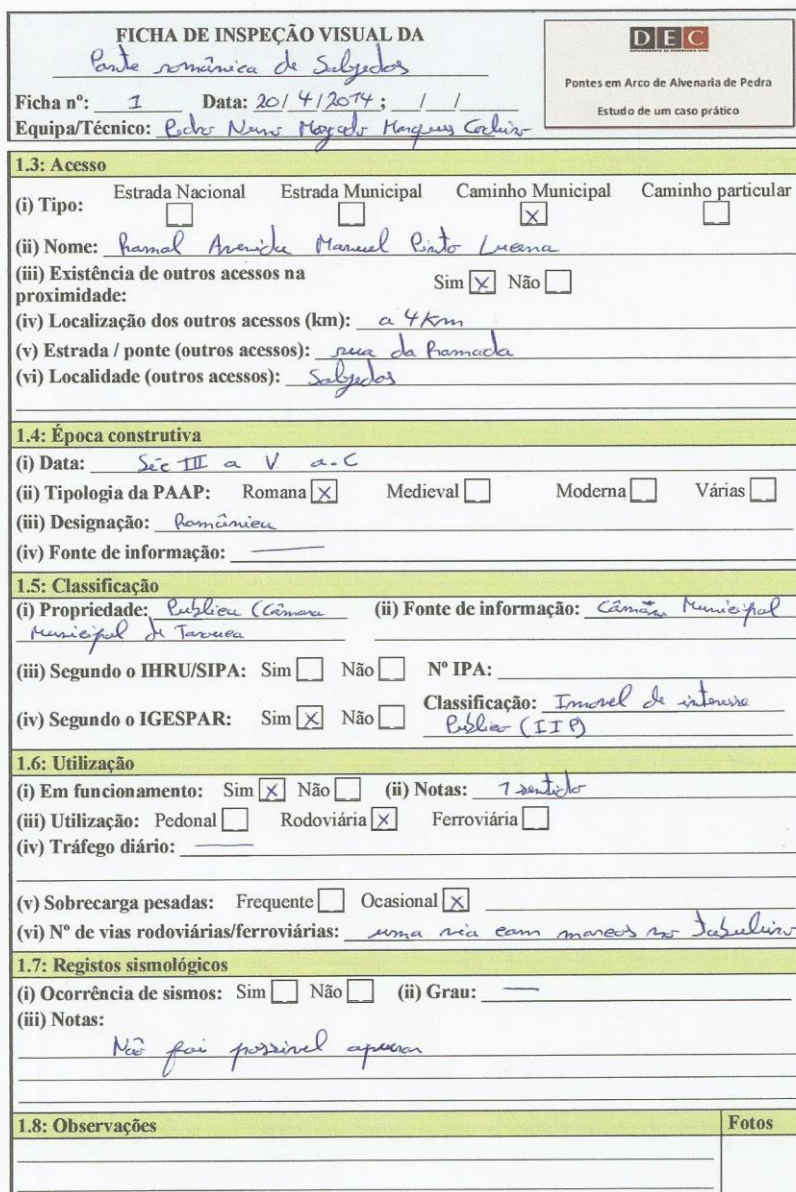 FICHA DE INSPEÇÃO VISUAL DA
Ponte românica de Salzedas
DEC
Pontes em Arco de Alvenaria de Pedra
Estudo de um caso prático
Ficha nº: 1 Data: 20/4/2014 ; / /
Equipa/Técnico: Pedro Nuno Marques
1.3: Acesso
Estrada Nacional Estrada Municipal Caminho Municipal Caminho particular
(i) Tipo: X
(ii) Nome: Ramal Avenida Manuel Pinto
(iii) Existência de outros acessos na Sim X Não
proximidade:
(iv) Localização dos outros acessos (km): a 4 Km
(v) Estrada / ponte (outros acessos): rua da Ramada
(vi) Localidade (outros acessos): Salzedas
1.4: Época construtiva
(i) Data: Séc III a V a.C
(ii) Tipologia da PAAP: Romana X Medieval Moderna Várias
(iii) Designação: Românica
(iv) Fonte de informação: —
1.5: Classificação
(i) Propriedade: Publica (Câmara (ii) Fonte de informação: Câmara Municipal
Municipal de Tarouca
(iii) Segundo o IHRU/SIPA: Sim Não Nº IPA:
(iv) Segundo o IGESPAR: Sim X Não Classificação: Imovel de interesse
Público (IIP)
1.6: Utilização
(i) Em funcionamento: Sim X Não (ii) Notas: 1 sentido
(iii) Utilização: Pedonal Rodoviária X Ferroviária
(iv) Tráfego diário: —
(v) Sobrecarga pesadas: Frequente Ocasional X
(vi) Nº de vias rodoviárias/ferroviárias: uma via com marcos no tabuleiro
1.7: Registos sismológicos
(i) Ocorrência de sismos: Sim Não (ii) Grau: —
(iii) Notas:
Não foi possivel apurar
1.8: Observações Fotos